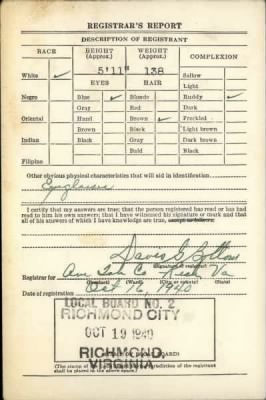 REGISTRAR'S REPORT
DESCRIPTION OF REGISTRANT
RACE HEIGHT (Approx.) WEIGHT (Approx.) COMPLEXION
5' 11" 138
White ✓ Sallow
EYES HAIR Light
Negro Blue ✓ Blonde Ruddy ✓
Gray Red Dark
Oriental Hazel Brown ✓ Freckled
Brown Black Light brown
Indian Black Gray Dark brown
Bald Black
Filipino
Other obvious physical characteristics that will aid in identification
I certify that my answers are true; that the person registered has read or has
had read to him his own answers; that I have witnessed his signature or mark and that
all of his answers of which I have knowledge are true, except as follows:
(Signature of registrar)
Registrar for Va
(Precinct) (Ward) (City or county) (State)
Date of registration Oct 16, 1940
LOCAL BOARD NO. 2
RICHMOND CITY
OCT 19 1940
RICHMOND,
VIRGINIA